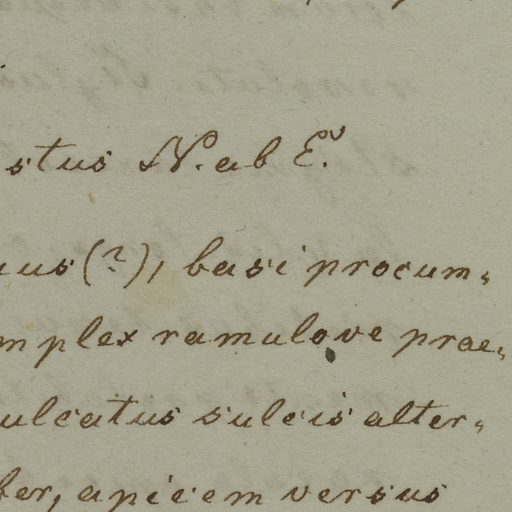 stus N. ab E.
uus (?), basi procum-
mplex ramulove prae-
ulcatus sulcis alter-
ber, apicem versus